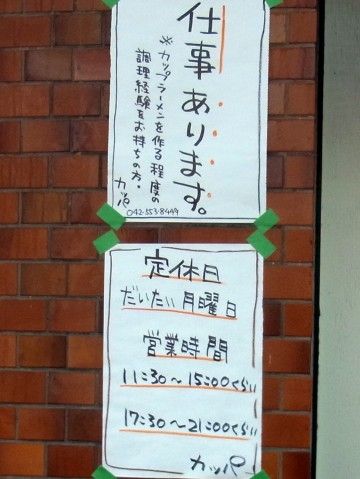 仕事あります。
※カップラーメンを作る程度の
調理経験をお持ちの方。
カッパ
042-553-8449
定休日
だいたい月曜日
営業時間
11:30〜15:00くらい
17:30〜21:00くらい
カッパ